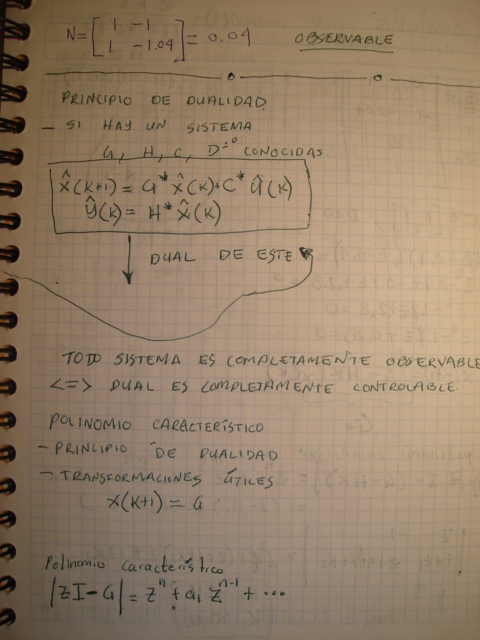 N = [1 -1
1 -1.04] = 0.04 OBSERVABLE
PRINCIPIO DE DUALIDAD
- SI HAY UN SISTEMA
G, H, C, D=0 CONOCIDAS
X̂(K+1) = G* X̂(K) + C* Û(K)
Ŷ(K) = H* X̂(K)
DUAL DE ESTE
TODO SISTEMA ES COMPLETAMENTE OBSERVABLE
<=> DUAL ES COMPLETAMENTE CONTROLABLE.
POLINOMIO CARACTERÍSTICO
- PRINCIPIO DE DUALIDAD
- TRANSFORMACIONES ÚTILES
X(K+1) = G
Polinomio Característico
|ZI - G| = Z^n + a₁ Z^n-1 + ...